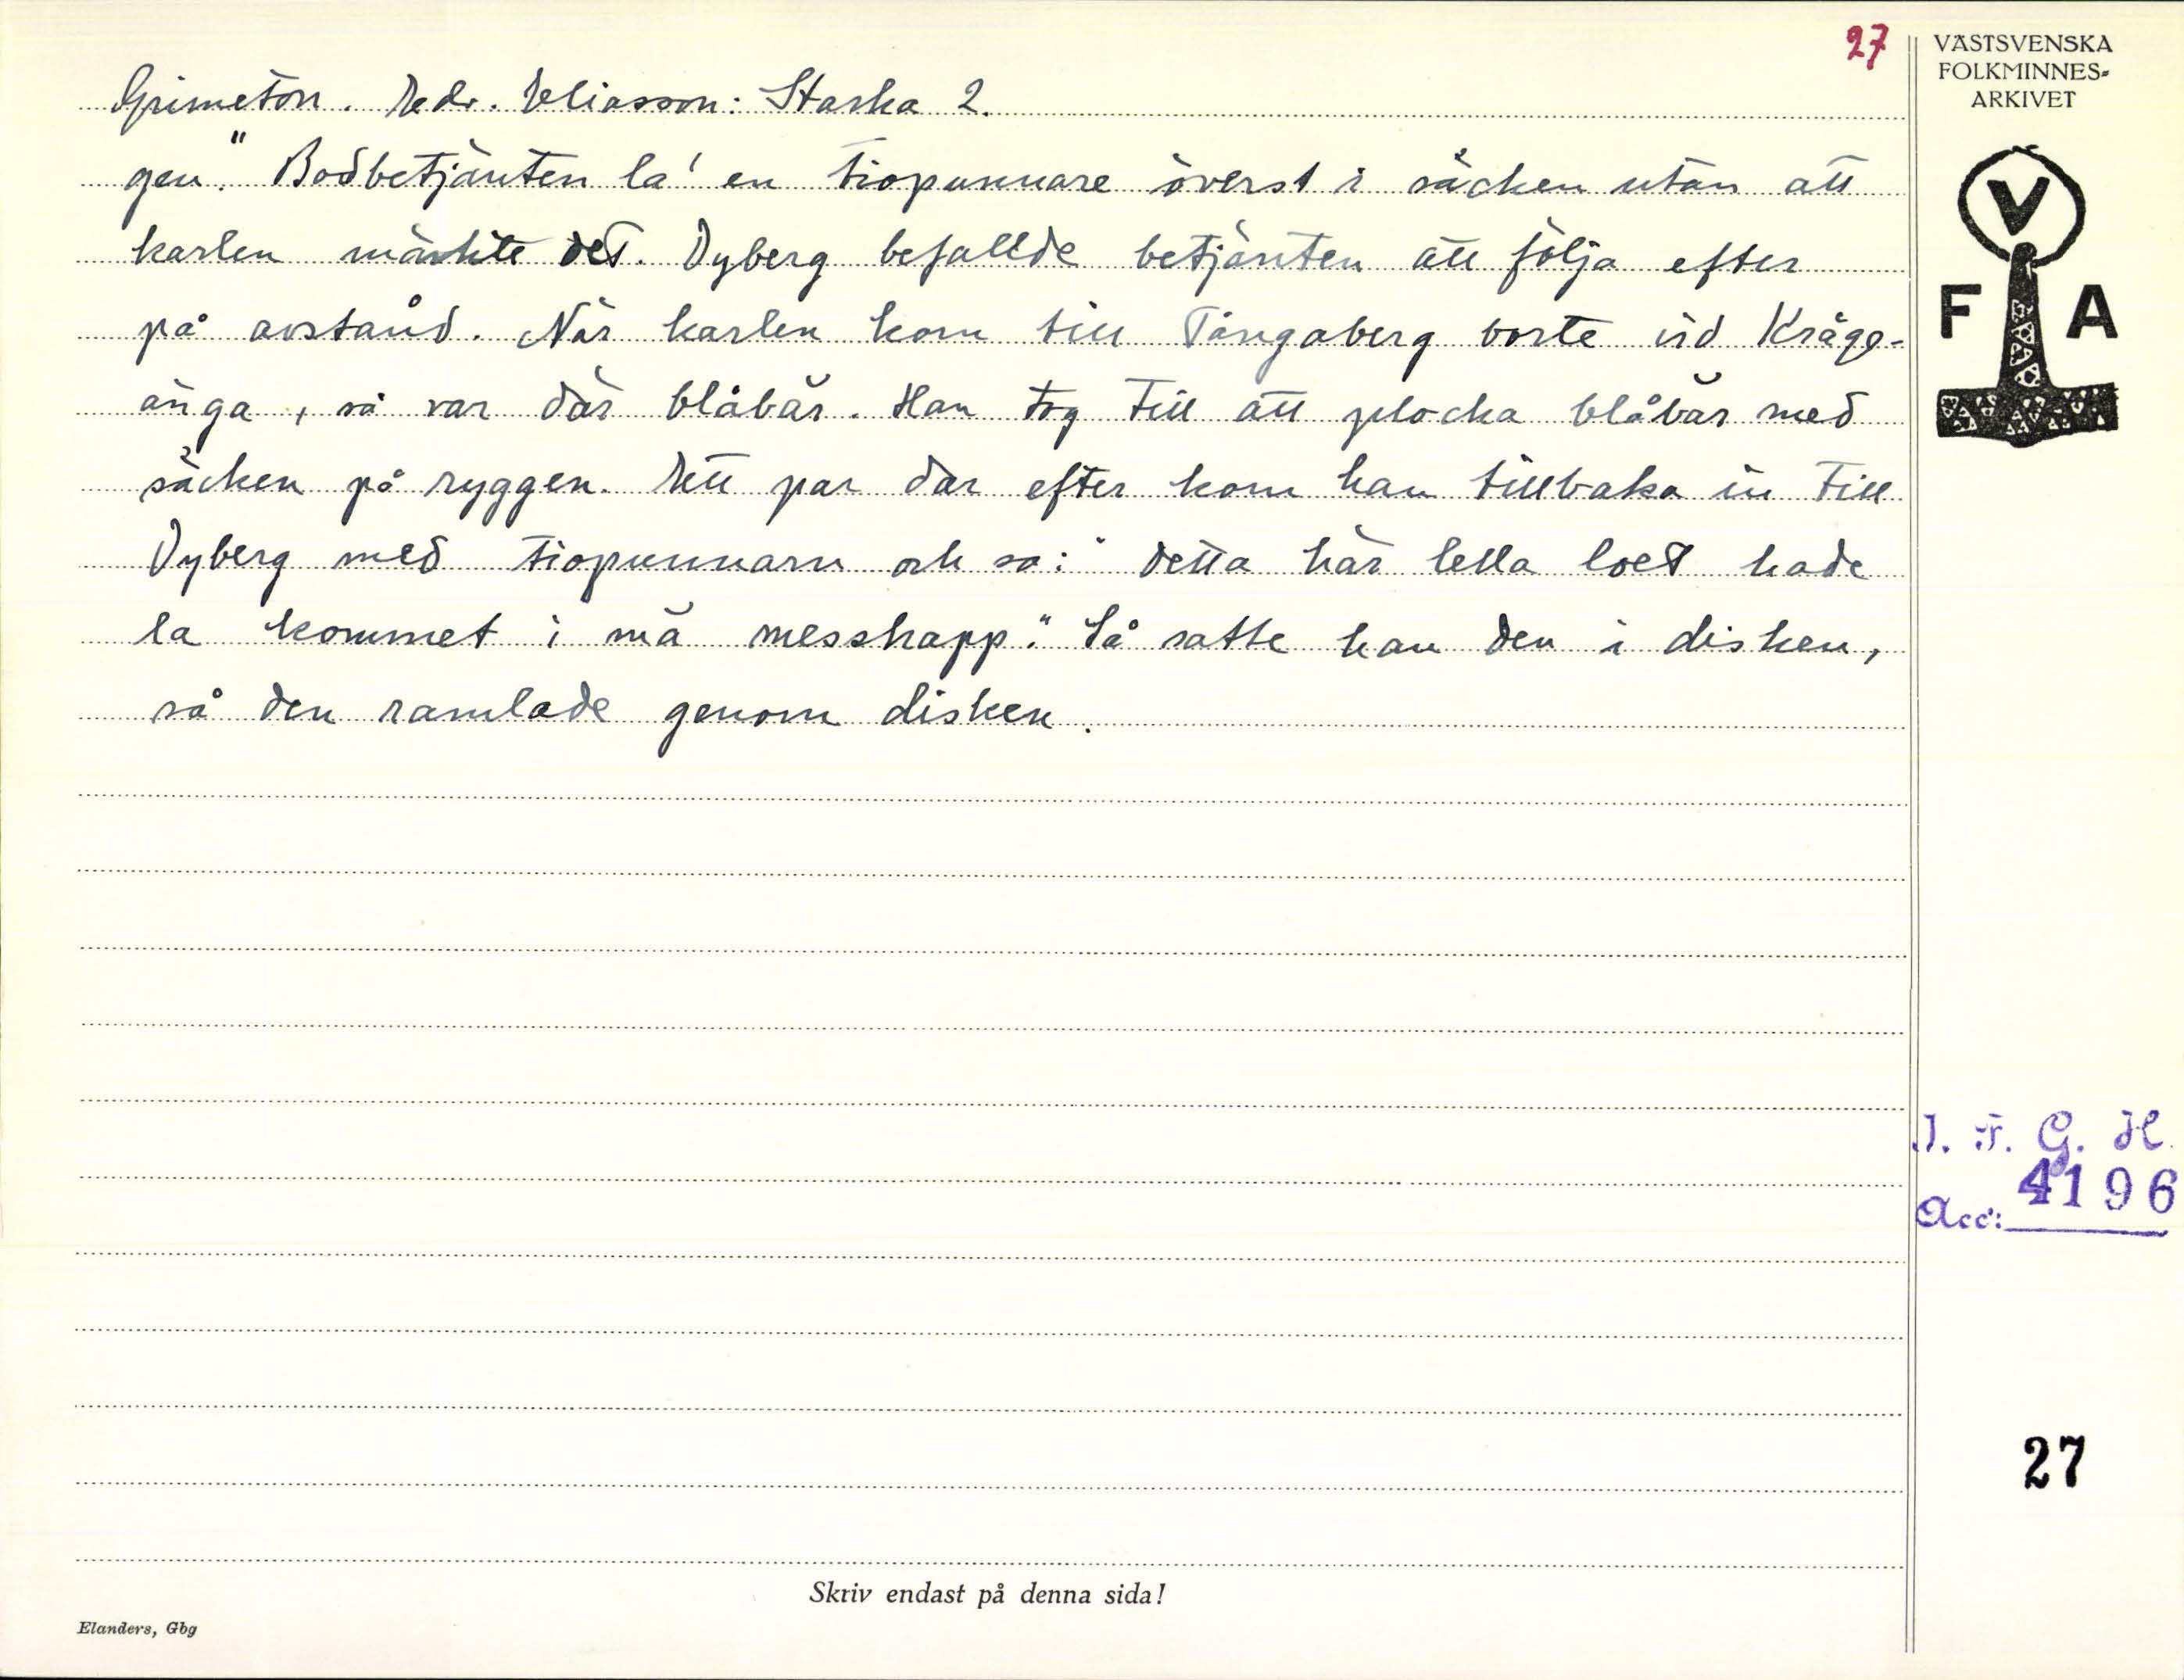 27
Grimeton. Edv. Eliasson: Starka 2.
gen." Bodbetjänten la' en tiopunnare överst i säcken utan att
karlen märkte det. Dyberg befallde betjänten att följa efter
på avstånd. När karlen kom till Tångaberg borte vid Kråge-
änga, så var där blåbär. Han tog till att plocka blåbär med
säcken på ryggen. Ett par dar efter kom han tillbaka in till
Dyberg med tiopunnarn och sa: "Detta här lella loet hade
la kommet i mä messhapp." Så satte han den i disken,
så den ramlade genom disken.
Skriv endast på denna sida!
Elanders, Gbg
VÄSTSVENSKA
FOLKMINNES-
ARKIVET
V
F A
I. F. G. H.
Acc: 4196
27